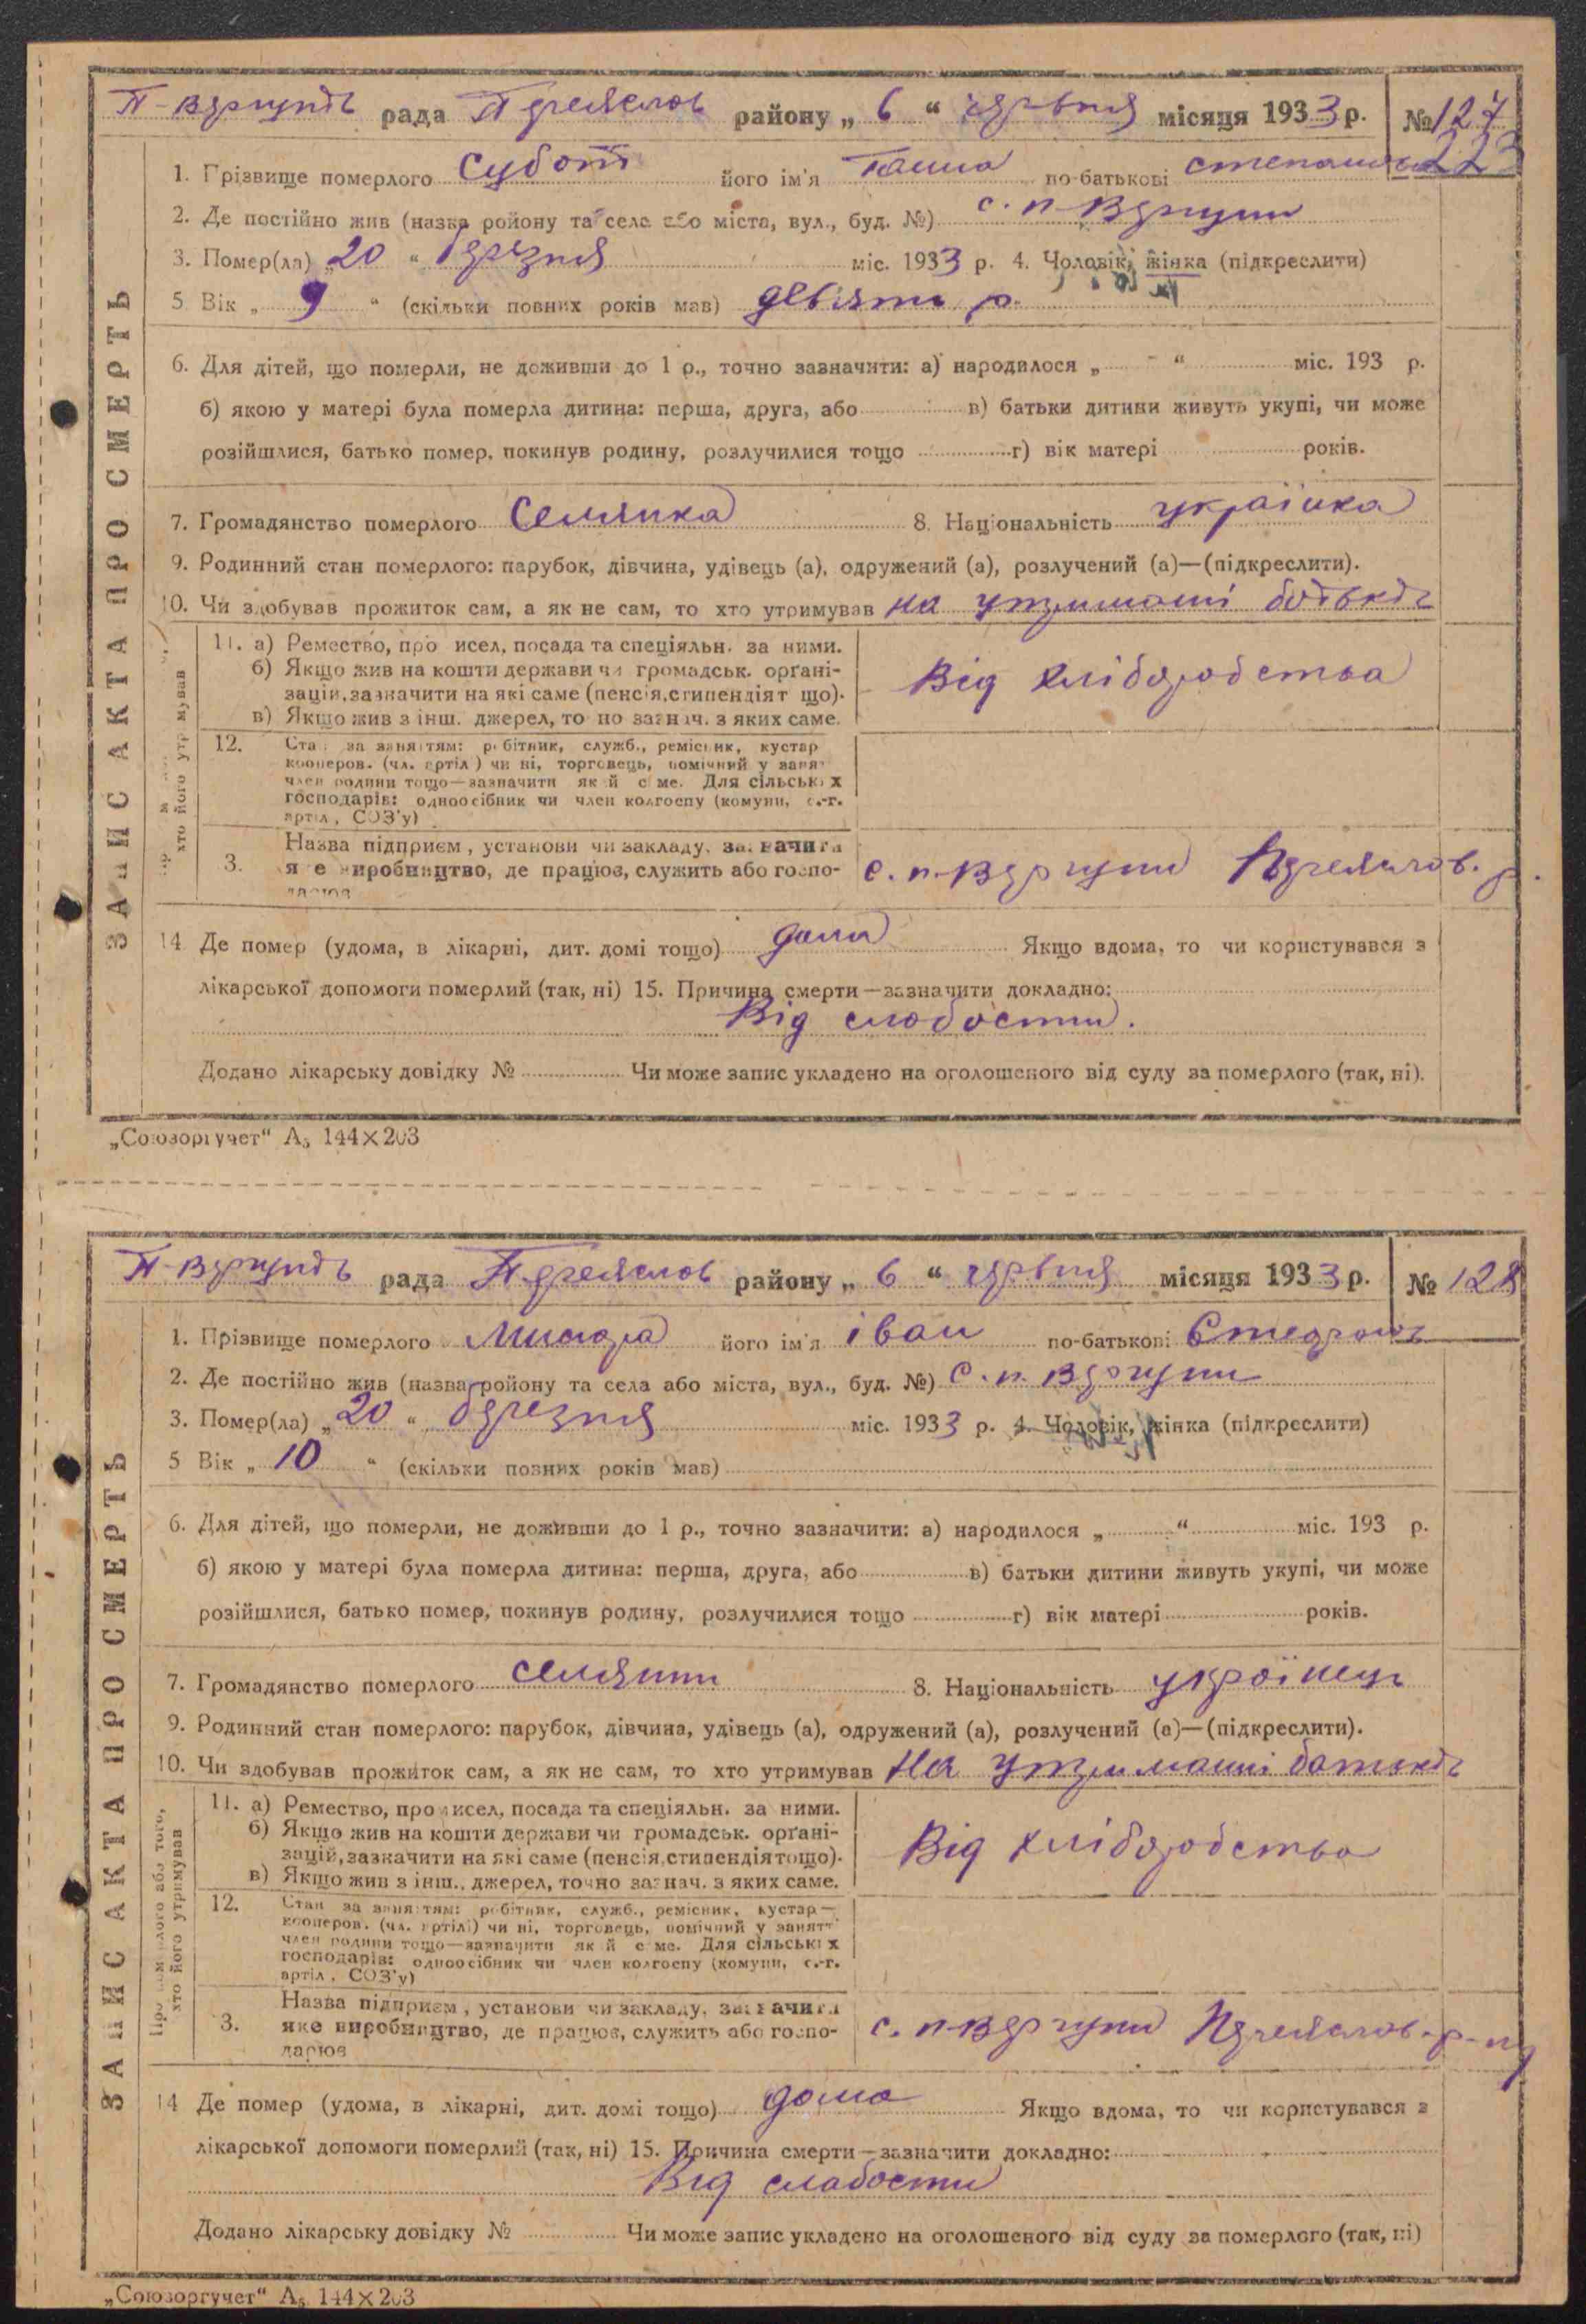 П-Вергунів рада Переяслов району „ 6 “ червня місяця 1933 р. № 127
223
1. Прізвище померлого Субота його ім'я Ганна по-батькові степанівна
2. Де постійно жив (назва ройону та села або міста, вул., буд. №) с. п-Вергуни
3. Помер(ла) „ 20 “ березня міс. 1933 р. 4. Чоловік, жінка (підкреслити)
5 Вік „ 9 “ (скільки повних років мав) девяти р.
6. Для дітей, що померли, не доживши до 1 р., точно зазначити: а) народилося „ “ міс. 193 р.
б) якою у матері була померла дитина: перша, друга, або в) батьки дитини живуть укупі, чи може
розійшлися, батько помер, покинув родину, розлучилися тощо г) вік матері років.
7. Громадянство померлого Селянка 8. Національність українка
9. Родинний стан померлого: парубок, дівчина, удівець (а), одружений (а), розлучений (а)—(підкреслити).
10. Чи здобував прожиток сам, а як не сам, то хто утримував на утриманні батьків
ЗАПИС АКТА ПРО СМЕРТЬ
хто його утримував
11. а) Ремество, про исел, посада та спеціяльн. за ними.
б) Якщо жив на кошти держави чи громадськ. орґані-
зацій, зазначити на які саме (пенсія, стипендія т що).
в) Якщо жив з інш. джерел, то но зазнач. з яких саме.
Від хліборобства
12. Стан за заняттям: робітник, служб., ремісник, кустар
кооперов. (чл. артіл ) чи ні, торговець, помічний у занят
член родини тощо—зазначити як й с ме. Для сільських
господарів: одноосібник чи член колгоспу (комуни, с.-г.
артіл, СОЗ'у)
3. Назва підприєм , установи чи закладу, зазначити
я е виробництво, де працює, служить або госпо-
дарює
с. п-Вергуни Переяслов. р.
14 Де помер (удома, в лікарні, дит. домі тощо) дома Якщо вдома, то чи користувався з
лікарської допомоги померлий (так, ні) 15. Причина смерти—зазначити докладно:
Від слабости.
Додано лікарську довідку № Чи може запис укладено на оголошеного від суду за померлого (так, ні).
„Союзоргучет“ А5 144×203
П-Вергунів рада Переяслов району „ 6 “ червня місяця 1933 р. № 128
1. Прізвище померлого його ім'я іван по-батькові
2. Де постійно жив (назва ройону та села або міста, вул., буд. №) С. п. Вергуни
3. Помер(ла) „ 20 “ березня міс. 1933 р. 4. Чоловік, жінка (підкреслити)
5 Вік „ 10 “ (скільки повних років мав)
6. Для дітей, що померли, не доживши до 1 р., точно зазначити: а) народилося „ “ міс. 193 р.
б) якою у матері була померла дитина: перша, друга, або в) батьки дитини живуть укупі, чи може
розійшлися, батько помер, покинув родину, розлучилися тощо г) вік матері років.
7. Громадянство померлого селянин 8. Національність українець
9. Родинний стан померлого: парубок, дівчина, удівець (а), одружений (а), розлучений (а)—(підкреслити).
10. Чи здобував прожиток сам, а як не сам, то хто утримував На утриманні батьків
ЗАПИС АКТА ПРО СМЕРТЬ
Про померлого або того,
хто його утримував
11. а) Ремество, про исел, посада та спеціяльн. за ними.
б) Якщо жив на кошти держави чи громадськ. орґані-
зацій, зазначити на які саме (пенсія, стипендія тощо).
в) Якщо жив з інш., джерел, точно зазнач. з яких саме.
Від хліборобства
12. Стан за заняттям: робітник, служб., ремісник, кустар—
кооперов. (чл. артілі) чи ні, торговець, помічний у занятт
член родини тощо—зазначити як й с ме. Для сільських
господарів: одноосібник чи член колгоспу (комуни, с.-г.
артіл, СОЗ'у)
3. Назва підприєм , установи чи закладу, зазначити
яке виробництво, де працює, служить або госпо-
дарює
с. п-Вергуни Переяслов. р-ну
14 Де помер (удома, в лікарні, дит. домі тощо) дома Якщо вдома, то чи користувався з
лікарської допомоги померлий (так, ні) 15. Причина смерти—зазначити докладно:
Від слабости
Додано лікарську довідку № Чи може запис укладено на оголошеного від суду за померлого (так, ні)
„Союзоргучет“ А5 144×203